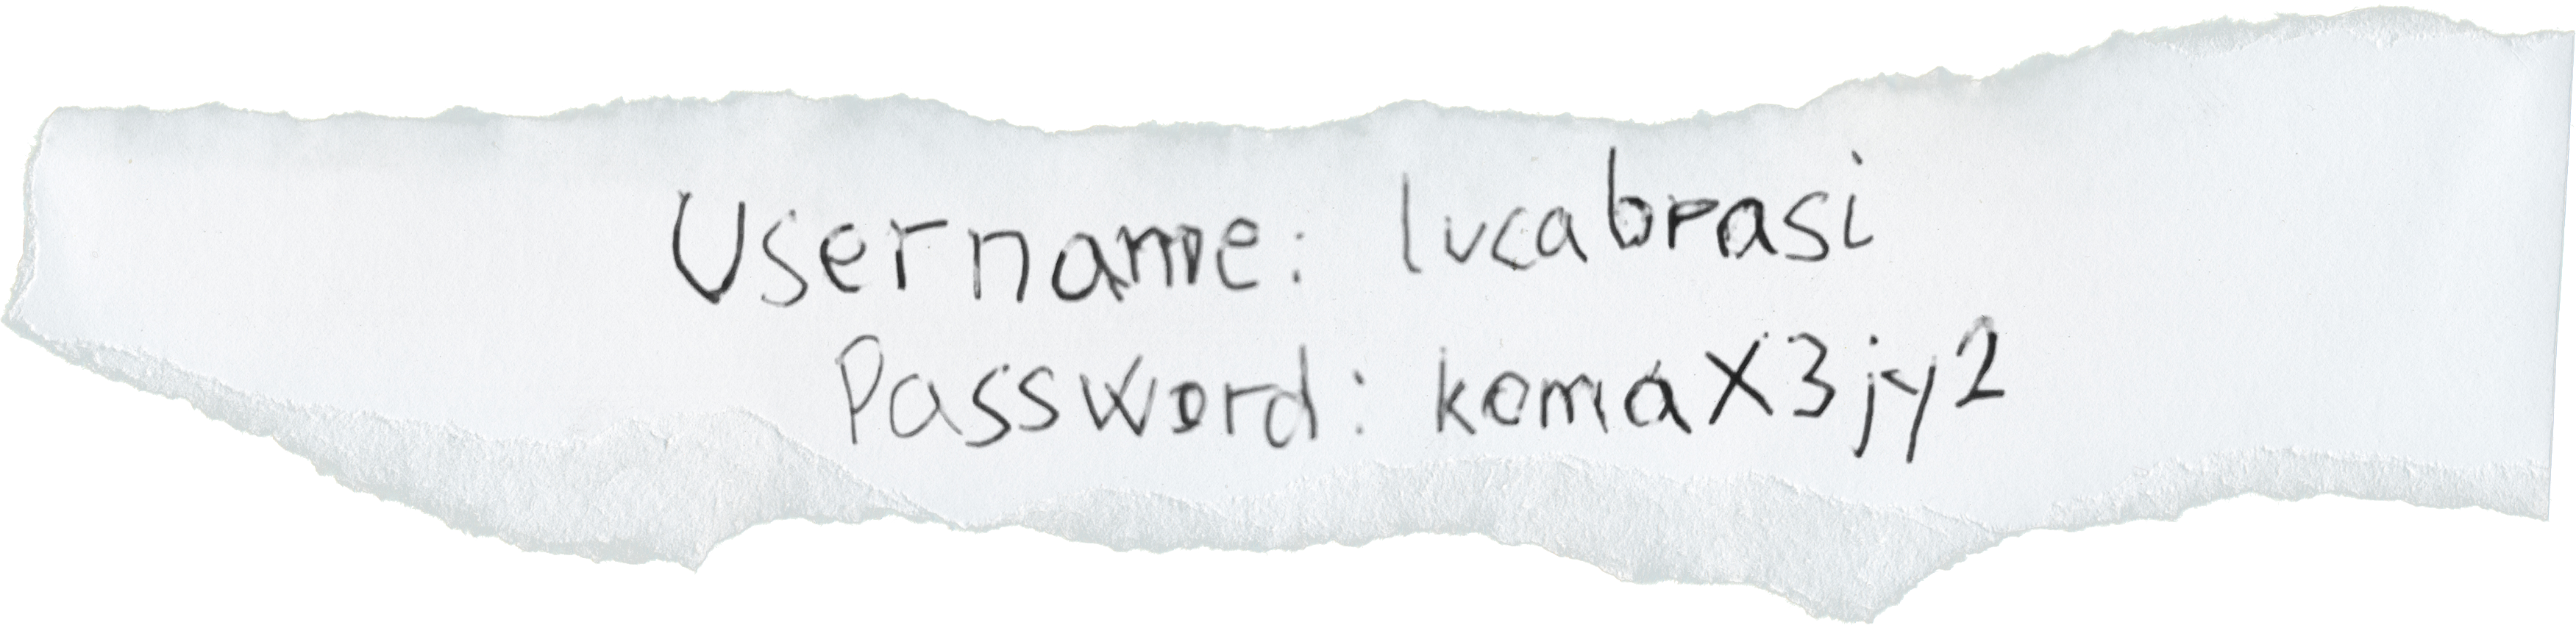 Username: lucabrasi
Password: komaX3jy2